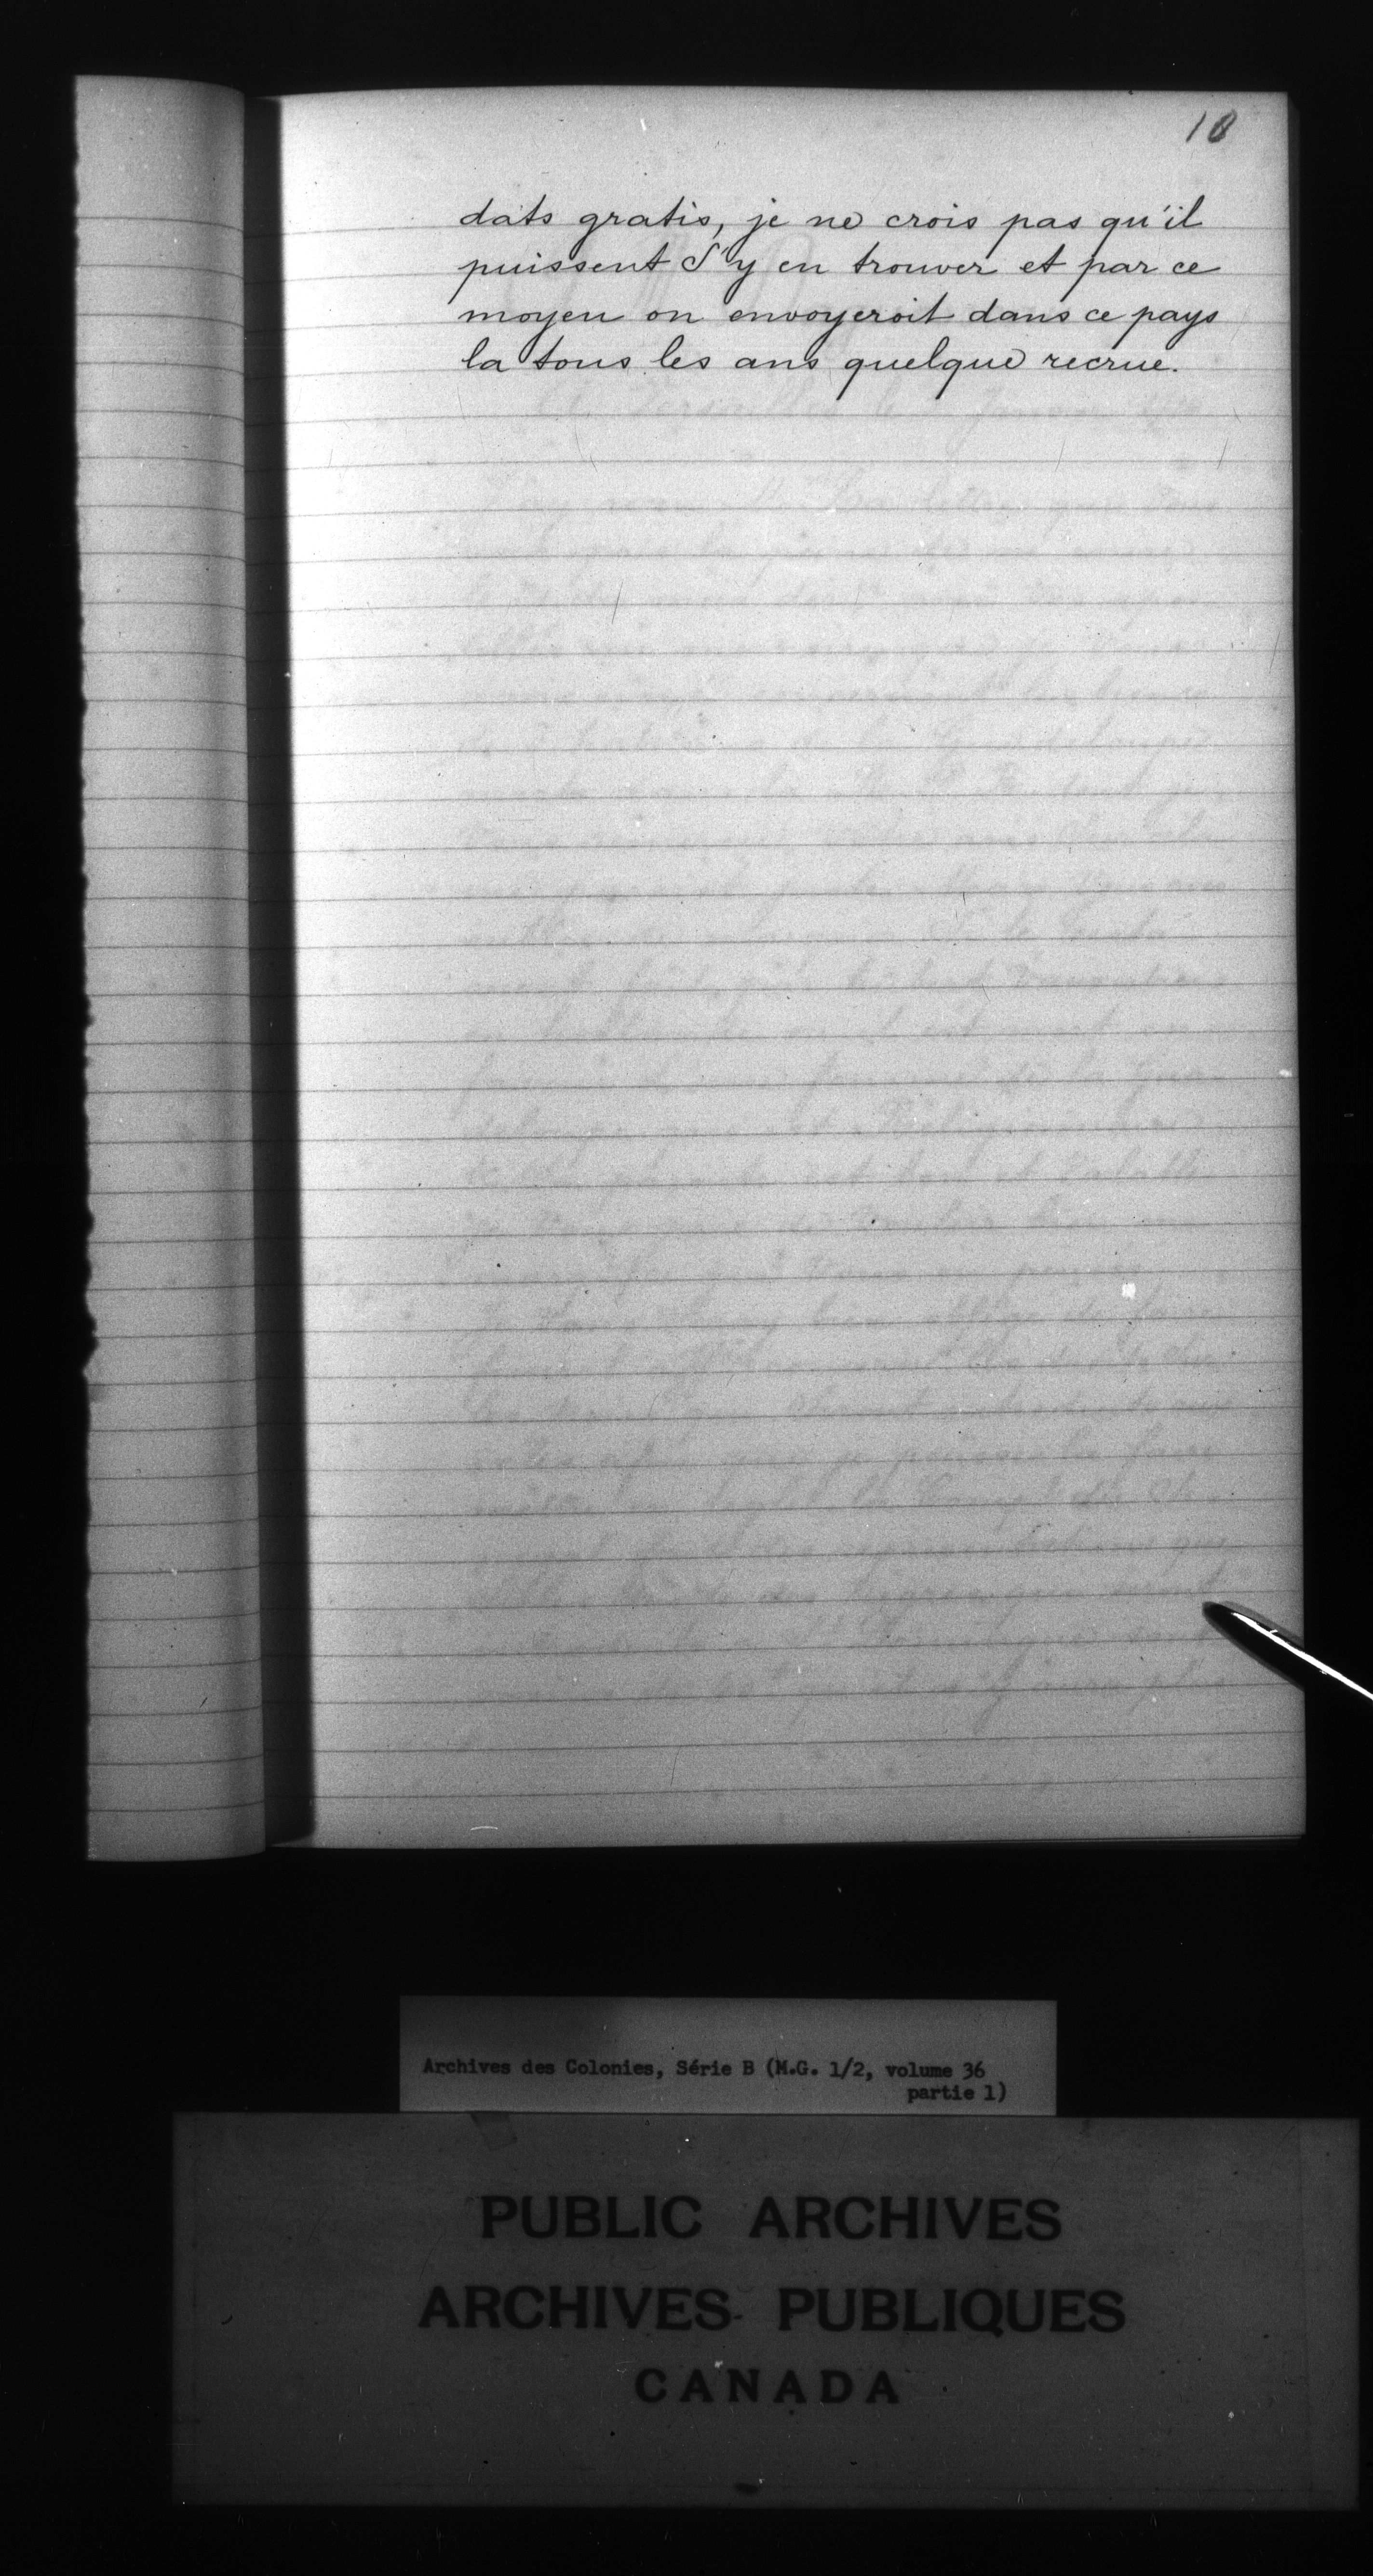 10
dats gratis, je ne crois pas qu'il
puissent S'y en trouver et par ce
moyen on envoyeroit dans ce pays
la tous les ans quelque recrue.
Archives des Colonies, Série B (M.G. 1/2, volume 36
partie 1)
PUBLIC ARCHIVES
ARCHIVES PUBLIQUES
CANADA